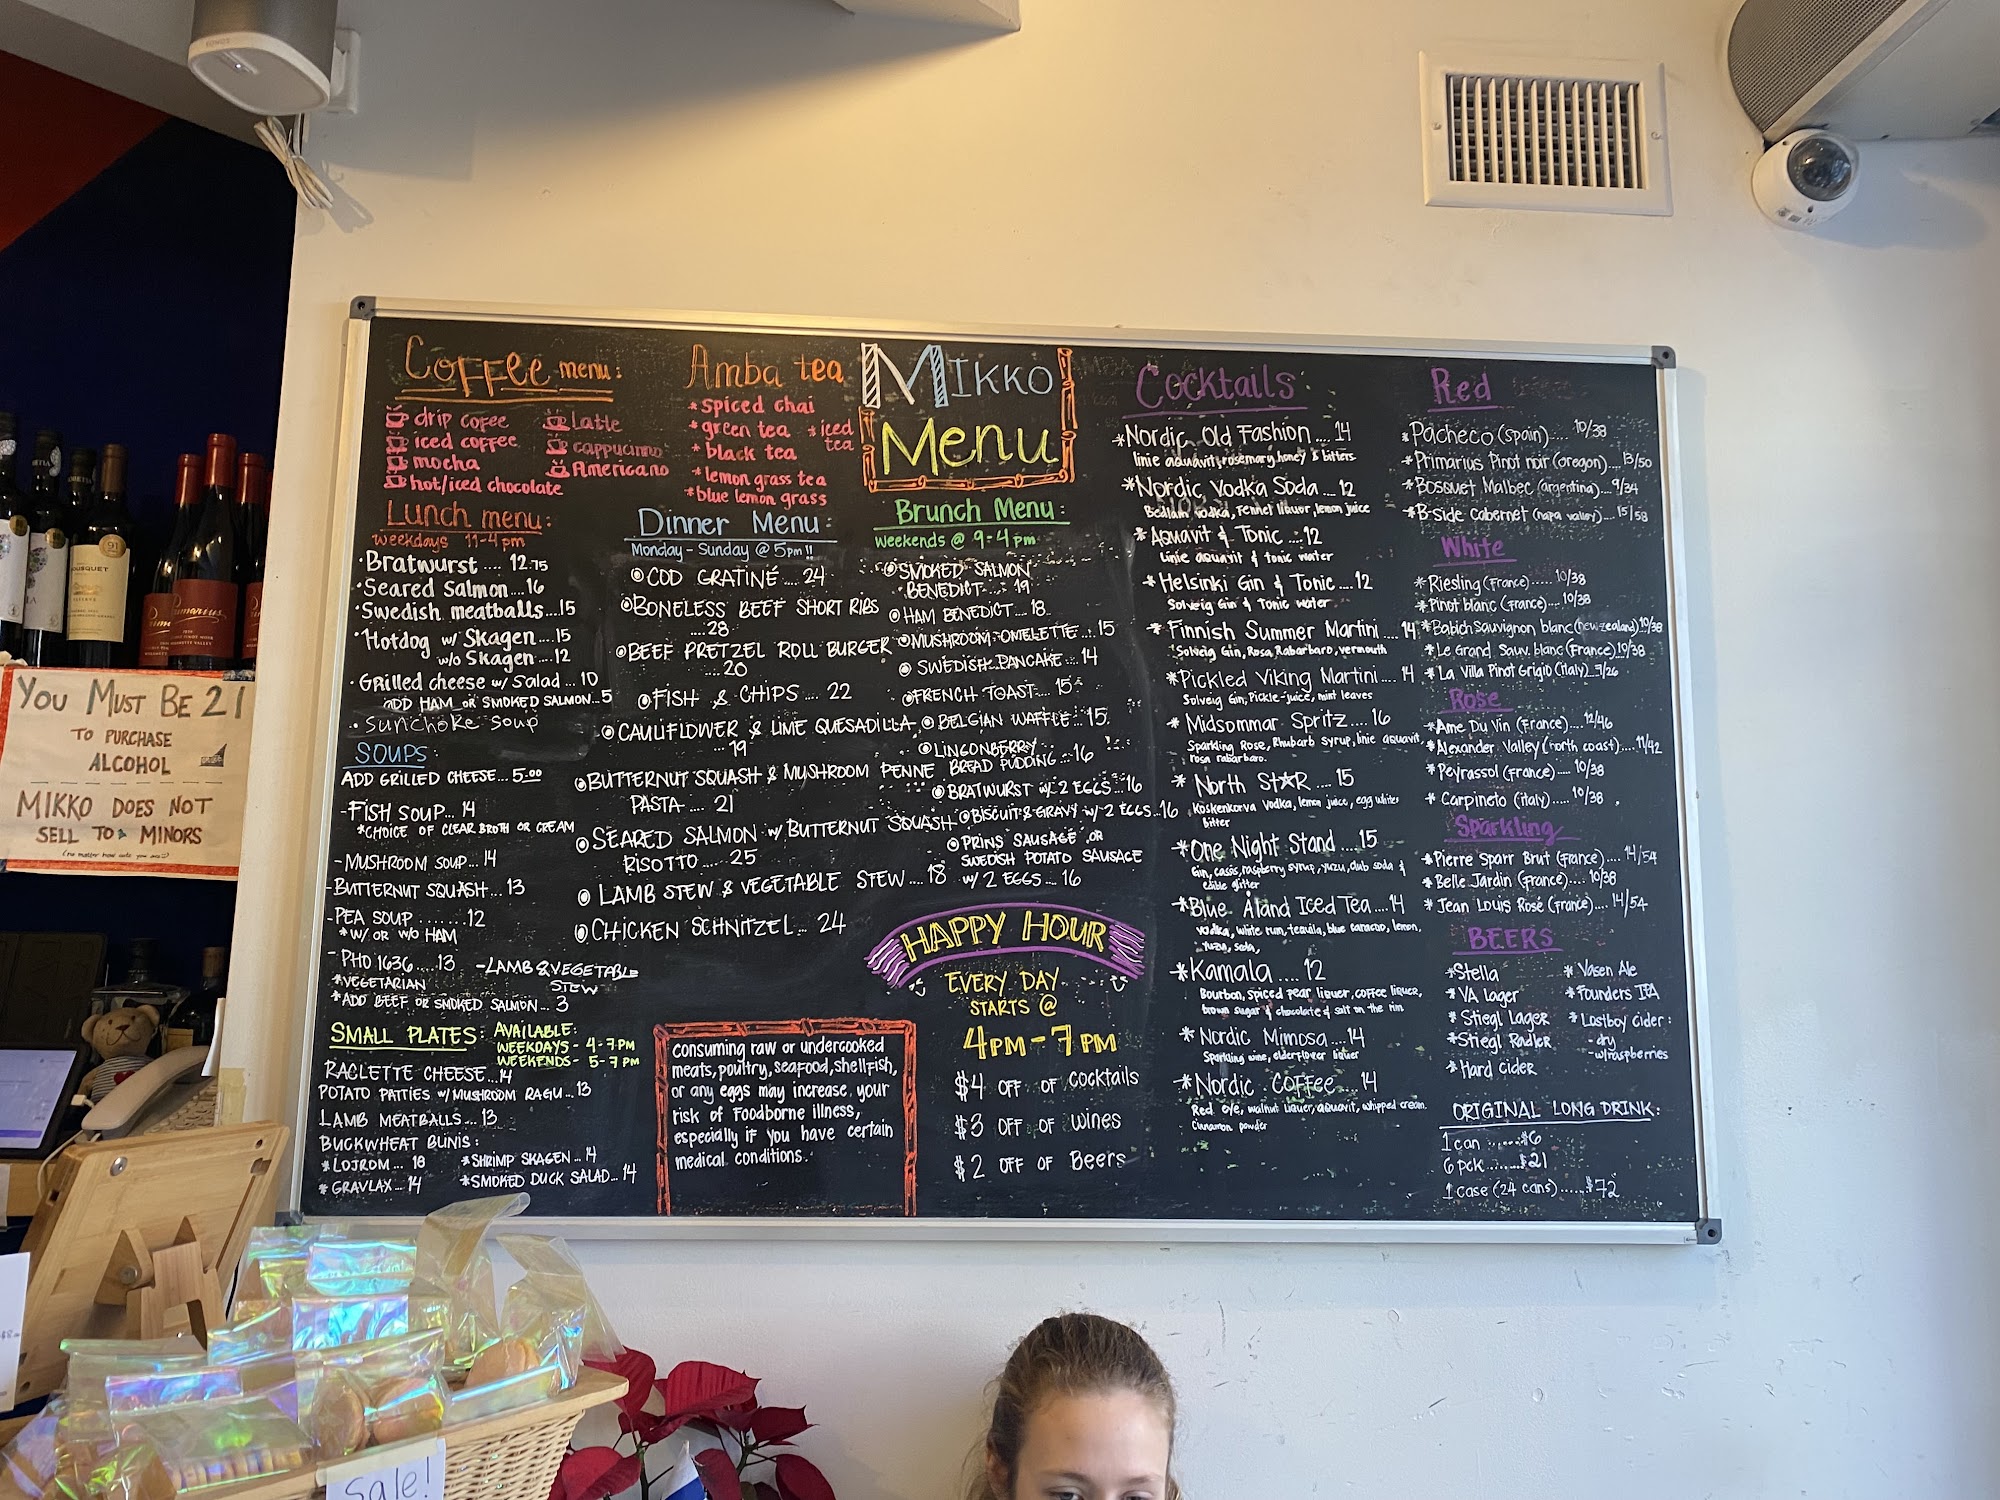 SONOS
You Must Be 21
TO PURCHASE
ALCOHOL
MIKKO DOES NOT
SELL TO MINORS
Coffee menu:
drip cofee
iced coffee
mocha
hot/iced chocolate
Latte
cappucinno
Americano
Amba tea
*spiced chai
*green tea
*iced tea
*black tea
*lemon grass tea
*blue lemon grass
MIKKO
Menu
Lunch menu:
weekdays 11-4pm
·Bratwurst .... 12.75
·Seared Salmon....16
·Swedish meatballs...15
·Hotdog w/ Skagen....15
w/o Skagen....12
·Grilled cheese w/ Salad...10
ADD HAM OR SMOKED SALMON...5
·Sunchoke soup
SOUPS:
ADD GRILLED CHEESE...5.00
-FISH SOUP...14
*CHOICE OF CLEAR BROTH OR CREAM
-MUSHROOM SOUP...14
-BUTTERNUT SQUASH...13
-PEA SOUP ........12
*W/ OR W/O HAM
-PHO 1636....13
*VEGETARIAN
*ADD BEEF OR SMOKED SALMON...3
-LAMB & VEGETABLE
STEW
SMALL PLATES: AVAILABLE:
WEEKDAYS - 4-7PM
WEEKENDS - 5-7 PM
RACLETTE CHEESE...14
POTATO PATTIES W/ MUSHROOM RAGU...13
LAMB MEATBALLS...13
BUCKWHEAT BLINIS:
*LOJROM... 18
*SHRIMP SKAGEN...14
*GRAVLAX...14
*SMOKED DUCK SALAD...14
Dinner Menu:
Monday - Sunday @ 5pm!!
COD GRATINÉ....24
BONELESS BEEF SHORT RIBS
....28
BEEF PRETZEL ROLL BURGER
....20
FISH & CHIPS....22
CAULIFLOWER & LIME QUESADILLA
...19
BUTTERNUT SQUASH & MUSHROOM PENNE
PASTA....21
SEARED SALMON W/ BUTTERNUT SQUASH
RISOTTO.....25
LAMB STEW & VEGETABLE STEW....18
CHICKEN SCHNITZEL...24
consuming raw or undercooked
meats, poultry, seafood, shellfish,
or any eggs may increase your
risk of Foodborne illness,
especially if you have certain
medical conditions.
Brunch Menu:
weekends @ 9-4pm
SMOKED SALMON
BENEDICT....19
HAM BENEDICT....18
MUSHROOM OMELETTE...15
SWEDISH PANCAKE...14
FRENCH TOAST....15
BELGIAN WAFFLE...15
LINGONBERRY
BREAD PUDDING...16
BRATWURST W/ 2 EGGS...16
BISCUIT & GRAVY W/ 2 EGGS...16
PRINS SAUSAGE OR
SWEDISH POTATO SAUSAGE
W/ 2 EGGS...16
HAPPY HOUR
EVERY DAY
STARTS @
4PM-7PM
$4 OFF OF COCKTAILS
$3 OFF OF WINES
$2 OFF OF Beers
Cocktails
*Nordic Old Fashion....14
linie aquavit, rosemary honey & bitters
*Nordic Vodka Soda...12
Bedlam vodka, Fennel liquor, lemon juice
*Aquavit & Tonic...12
Linie aquavit & tonic water
*Helsinki Gin & Tonic...12
Solveig Gin & Tonic water
*Finnish Summer Martini....14
Solveig Gin, Rosa, Rabarbaro, vermouth
*Pickled Viking Martini....14
Solveig Gin, Pickle-juice, mint leaves
*Midsommar Spritz....16
Sparkling Rose, Rhubarb syrup, linie aquavit,
rosa rabarbaro.
*North STAR....15
Koskenkorva vodka, lemon juice, egg white
bitter
*One Night Stand....15
Gin, casas, raspberry syrup, yuzu, club soda &
edible glitter
*Blue Åland Iced Tea....14
vodka, white rum, tequila, blue curacao, lemon,
yuzu, soda,
*Kamala....12
Bourbon, spiced pear liquer, coffee liquer,
brown sugar & chocolate & salt on the rim
*Nordic Mimosa....14
Sparkling wine, elderflower liquer
*Nordic Coffee....14
Red eye, walnut liquer, aquavit, whipped cream
cinnamon powder
Red
*Pacheco (spain)....10/38
*Primarius Pinot noir (oregon)....13/50
*Bosquet Malbec (argentina)...9/34
*B-Side Cabernet (napa valley)...15/58
White
*Riesling (France).....10/38
*Pinot blanc (France)....10/38
*Babich Sauvignon blanc (new zealand) 10/38
*Le Grand Sauv. blanc (France) 10/38
*La Villa Pinot Grigio (italy) 7/26
Rose
*Ame Du Vin (France)....12/46
*Alexander Valley (north coast)....11/42
*Peyrassol (France)....10/38
*Carpineto (italy).....10/38
Sparkling
*Pierre Sparr Brut (France)....14/54
*Belle Jardin (France)....10/38
*Jean Louis Rosé (France)....14/54
BEERS
*Stella
*VA Lager
*Stiegl Lager
*Stiegl Radler
*Hard cider
*Vasen Ale
*Founders IPA
*Lostboy cider:
-dry
-w/raspberries
ORIGINAL LONG DRINK:
1 can ......$6
6 pck ......$21
1 case (24 cans)......$72
Sale!